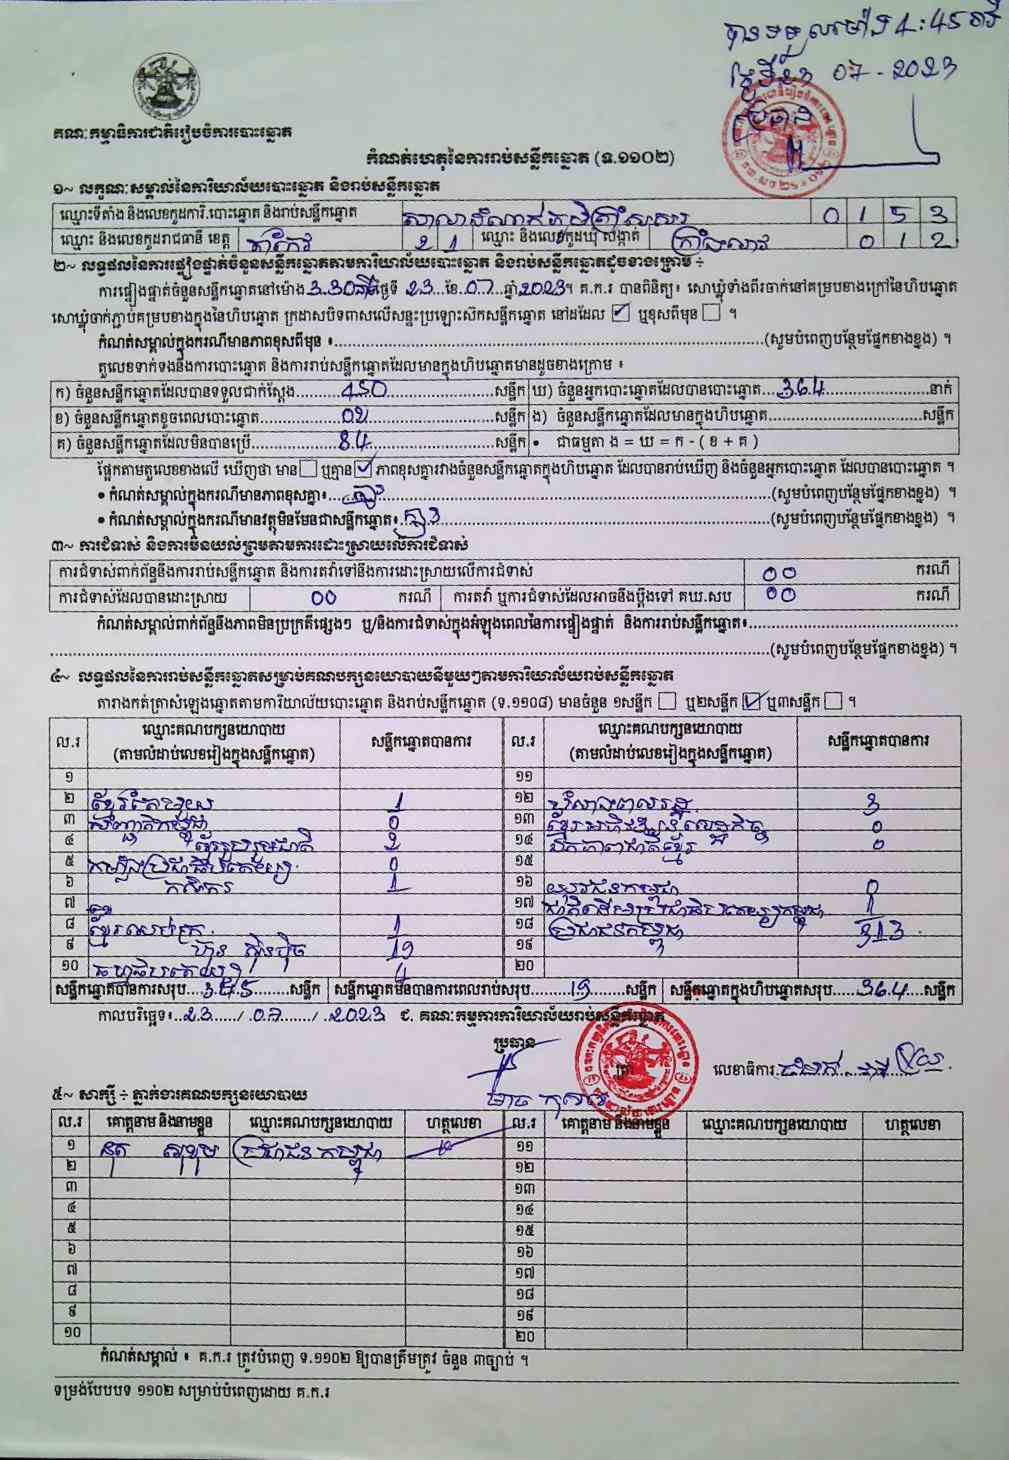 បានទទួលម៉ោង 4:45 នាទី
07-2023
ប្រធាន
គណៈកម្មាធិការជាតិរៀបចំការបោះឆ្នោត
កំណត់ហេតុនៃការរាប់សន្លឹកឆ្នោត (ទ.១១០២)
១~ លក្ខណៈសម្គាល់នៃការិយាល័យបោះឆ្នោត និងរាប់សន្លឹកឆ្នោត
ឈ្មោះទីតាំង និងលេខកូដការិ.បោះឆ្នោត និងរាប់សន្លឹកឆ្នោត 0 1 5 3
ឈ្មោះ និងលេខកូដរាជធានី ខេត្ត តាកែវ 2 1 ឈ្មោះ និងលេខកូដឃុំ សង្កាត់ 0 1 2
២~ លទ្ធផលនៃការផ្ទៀងផ្ទាត់ចំនួនសន្លឹកឆ្នោតតាមការិយាល័យបោះឆ្នោត និងរាប់សន្លឹកឆ្នោតដូចខាងក្រោម ÷
ការផ្ទៀងផ្ទាត់ចំនួនសន្លឹកឆ្នោតនៅម៉ោង 3.30នាទី ថ្ងៃទី 23 ខែ 07 ឆ្នាំ 2023។ គ.ក.រ បានពិនិត្យ៖ សោឃ្លុំទាំងពីរចាក់នៅគម្របខាងក្រៅនៃហិបឆ្នោត
សោឃ្លុំចាក់ភ្ជាប់គម្របខាងក្នុងនៃហិបឆ្នោត ក្រដាសបិទពាសលើសន្ទះប្រឡោះសឹកសន្លឹកឆ្នោត នៅដដែល ☑ ឬខុសពីមុន ☐ ។
កំណត់សម្គាល់ក្នុងករណីមានភាពខុសពីមុន ៖ (សូមបំពេញបន្ថែមផ្នែកខាងខ្នង) ។
តួលេខទាក់ទងនឹងការបោះឆ្នោត និងការរាប់សន្លឹកឆ្នោតដែលមានក្នុងហិបឆ្នោតមានដូចខាងក្រោម ៖
ក) ចំនួនសន្លឹកឆ្នោតដែលបានទទួលជាក់ស្តែង 450 សន្លឹក ឃ) ចំនួនអ្នកបោះឆ្នោតដែលបានបោះឆ្នោត 364 នាក់
ខ) ចំនួនសន្លឹកឆ្នោតខូចពេលបោះឆ្នោត 02 សន្លឹក ង) ចំនួនសន្លឹកឆ្នោតដែលមានក្នុងហិបឆ្នោត សន្លឹក
គ) ចំនួនសន្លឹកឆ្នោតដែលមិនបានប្រើ 84 សន្លឹក • ជាធម្មតា ង = ឃ = ក - ( ខ + គ )
ផ្អែកតាមតួលេខខាងលើ ឃើញថា មាន ☐ ឬគ្មាន ☑ ភាពខុសគ្នារវាងចំនួនសន្លឹកឆ្នោតក្នុងហិបឆ្នោត ដែលបានរាប់ឃើញ និងចំនួនអ្នកបោះឆ្នោត ដែលបានបោះឆ្នោត ។
• កំណត់សម្គាល់ក្នុងករណីមានភាពខុសគ្នា៖ គ្មាន (សូមបំពេញបន្ថែមផ្នែកខាងខ្នង) ។
• កំណត់សម្គាល់ក្នុងករណីមានវត្ថុមិនមែនជាសន្លឹកឆ្នោត៖ គ្មាន (សូមបំពេញបន្ថែមផ្នែកខាងខ្នង) ។
៣~ ការជំទាស់ និងការមិនយល់ព្រមតាមការដោះស្រាយលើការជំទាស់
ការជំទាស់ពាក់ព័ន្ធនឹងការរាប់សន្លឹកឆ្នោត និងការតវ៉ាទៅនឹងការដោះស្រាយលើការជំទាស់ 00 ករណី
ការជំទាស់ដែលបានដោះស្រាយ 00 ករណី ការតវ៉ា ឬការជំទាស់ដែលអាចនឹងប្តឹងទៅ គឃ.សប 00 ករណី
កំណត់សម្គាល់ពាក់ព័ន្ធនឹងភាពមិនប្រក្រតីផ្សេងៗ ឬ/និងការជំទាស់ក្នុងអំឡុងពេលនៃការផ្ទៀងផ្ទាត់ និងការរាប់សន្លឹកឆ្នោត៖
(សូមបំពេញបន្ថែមផ្នែកខាងខ្នង) ។
៤~ លទ្ធផលនៃការរាប់សន្លឹកឆ្នោតសម្រាប់គណបក្សនយោបាយនីមួយៗតាមការិយាល័យរាប់សន្លឹកឆ្នោត
តារាងកត់ត្រាសំឡេងឆ្នោតតាមការិយាល័យបោះឆ្នោត និងរាប់សន្លឹកឆ្នោត (ទ.១១០៨) មានចំនួន ១សន្លឹក ☐ ឬ២សន្លឹក ☑ ឬ៣សន្លឹក ☐ ។
ល.រ ឈ្មោះគណបក្សនយោបាយ (តាមលំដាប់លេខរៀងក្នុងសន្លឹកឆ្នោត) សន្លឹកឆ្នោតបានការ ល.រ ឈ្មោះគណបក្សនយោបាយ (តាមលំដាប់លេខរៀងក្នុងសន្លឹកឆ្នោត) សន្លឹកឆ្នោតបានការ
១ ១១
២ ខ្មែរតែមួយ 1 ១២ 3
៣ សញ្ជាតិកម្ពុជា 0 ១៣ ខ្មែរអភិវឌ្ឍន៍សេដ្ឋកិច្ច 0
៤ ខ្មែររួបរួមជាតិ 2 ១៤ ឯកភាពជាតិខ្មែរ 0
៥ កម្លាំងប្រជាធិបតេយ្យ 0 ១៥
៦ កសិករ 1 ១៦ យុវជនកម្ពុជា 0
៧ ១៧ ជាតិដើមប្រជាធិបតេយ្យកម្ពុជា 1
៨ 1 ១៨ ប្រជាជនកម្ពុជា 313
៩ ហ៊្វុនស៊ិនប៉ិច 19 ១៩
១០ 4 ២០
សន្លឹកឆ្នោតបានការសរុប 345 សន្លឹក សន្លឹកឆ្នោតមិនបានការពេលរាប់សរុប 19 សន្លឹក សន្លឹកឆ្នោតក្នុងហិបឆ្នោតសរុប 364 សន្លឹក
កាលបរិច្ឆេទ៖ 23 / 07 / 2023 ជ. គណៈកម្មការការិយាល័យរាប់សន្លឹកឆ្នោត
ប្រធាន
លេខាធិការ
៥~ សាក្សី ÷ ភ្នាក់ងារគណបក្សនយោបាយ
ល.រ គោត្តនាម និងនាមខ្លួន ឈ្មោះគណបក្សនយោបាយ ហត្ថលេខា ល.រ គោត្តនាម និងនាមខ្លួន ឈ្មោះគណបក្សនយោបាយ ហត្ថលេខា
១ ប្រជាជនកម្ពុជា ១១
២ ១២
៣ ១៣
៤ ១៤
៥ ១៥
៦ ១៦
៧ ១៧
៨ ១៨
៩ ១៩
១០ ២០
កំណត់សម្គាល់ ៖ គ.ក.រ ត្រូវបំពេញ ទ.១១០២ ឱ្យបានត្រឹមត្រូវ ចំនួន ៣ច្បាប់ ។
ទម្រង់បែបបទ ១១០២ សម្រាប់បំពេញដោយ គ.ក.រ